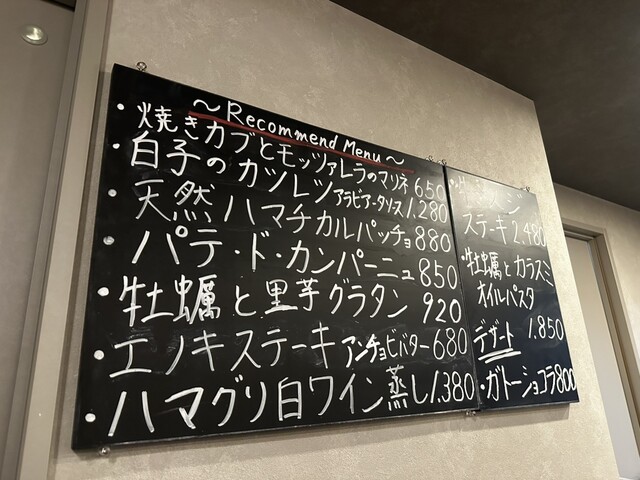 ～Recommend Menu～
・焼きカブとモッツァレラのマリネ 650
・白子のカツレツ アラビアータソース 1,280
・天然ハマチカルパッチョ 880
・パテ・ド・カンパーニュ 850
・牡蠣と里芋グラタン 920
・エノキステーキ アンチョビバター 680
・ハマグリ白ワイン蒸し 1,380
ステーキ 2,480
・牡蠣とカラスミ
オイルパスタ
1,850
デザート
・ガトーショコラ 800